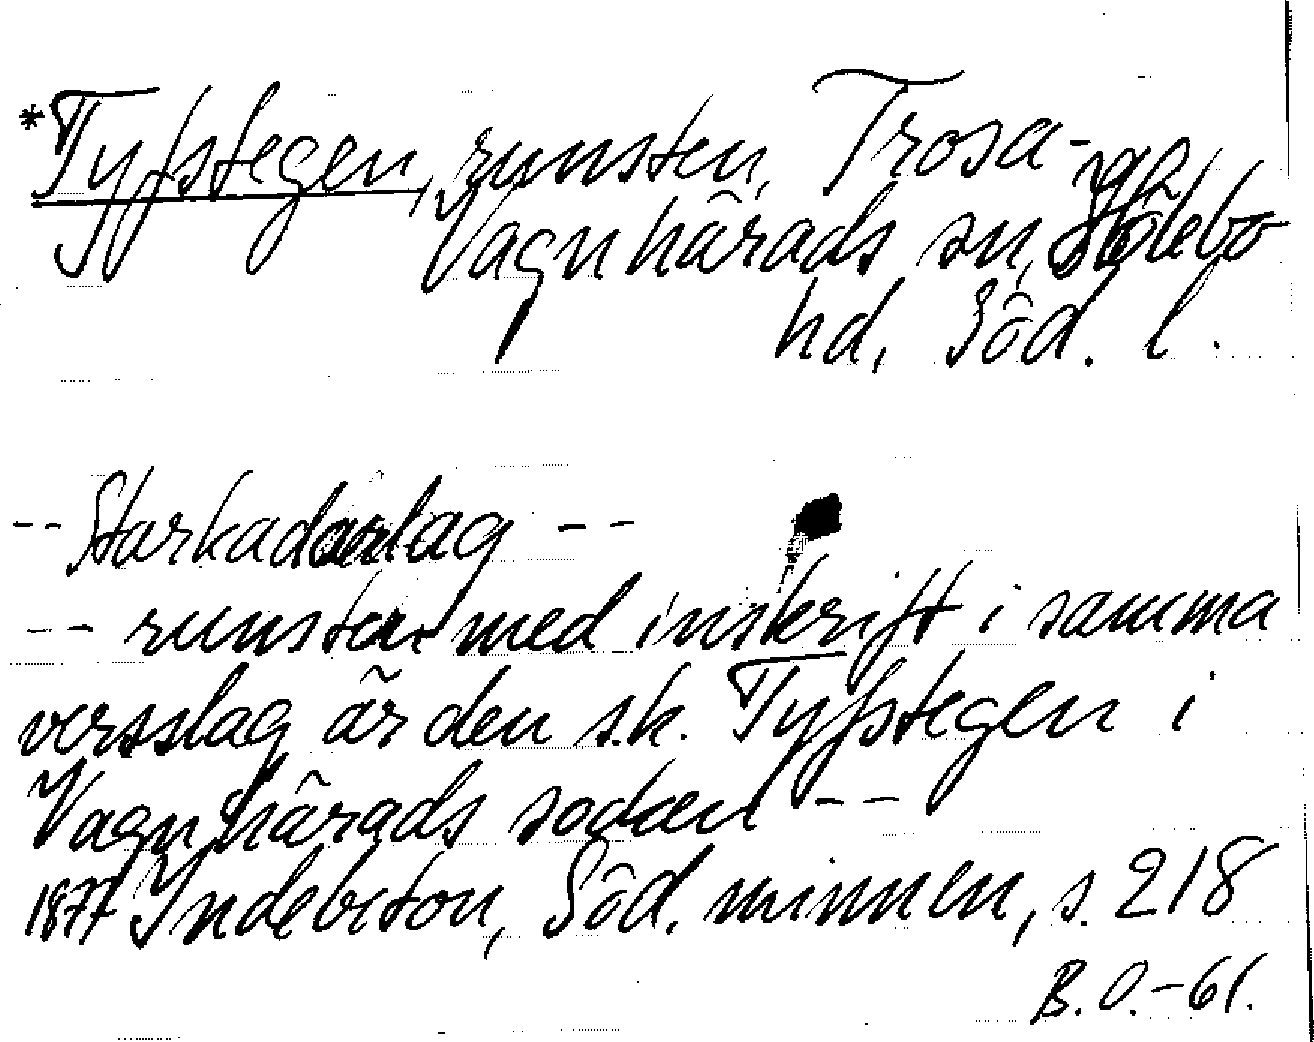 *Tyfstegen, runsten, Trosa-
Vagnhärads sn, Hölebo
hd, Söd. l.
-- Starkadarlag --
-- runsten med inskrift i samma
versslag är den s.k. Tyfstegen i
Vagnhärads socken --
1877 Indebetou, Söd. minnen, s. 218
B.O.-61.